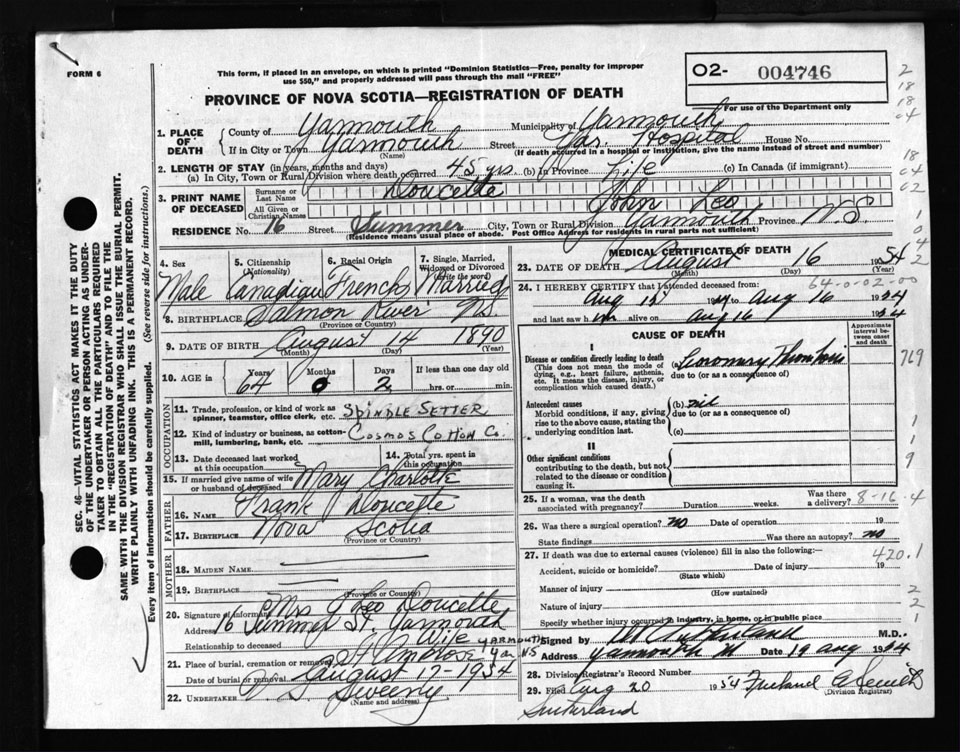 FORM 6
This form, if placed in an envelope, on which is printed "Dominion Statistics—Free, penalty for improper
use $50," and properly addressed will pass through the mail "FREE"
O2- 004746
For use of the Department only
PROVINCE OF NOVA SCOTIA—REGISTRATION OF DEATH
1. PLACE OF DEATH
County of Yarmouth Municipality of Yarmouth
If in City or Town Yarmouth Street Yar. Hospital House No.
(Name) (If death occurred in a hospital or institution, give the name instead of street and number)
2. LENGTH OF STAY (in years, months and days)
(a) In City, Town or Rural Division where death occurred 45 yrs. (b) In Province Life (c) In Canada (if immigrant)
3. PRINT NAME OF DECEASED
Surname or Last Name Doucette
All Given or Christian Names John Leo
RESIDENCE No. 16 Street Summer City, Town or Rural Division Yarmouth Province N.S.
(Residence means usual place of abode. Post Office Address for residents in rural parts not sufficient)
4. Sex Male
5. Citizenship (Nationality) Canadian
6. Racial Origin French
7. Single, Married, Widowed or Divorced (write the word) Married
8. BIRTHPLACE Salmon River N.S.
(Province or Country)
9. DATE OF BIRTH August 14 1890
(Month) (Day) (Year)
10. AGE in Years 64 Months 0 Days 2 If less than one day old hrs. or min.
OCCUPATION
11. Trade, profession, or kind of work as spinner, teamster, office clerk, etc. SPINDLE SETTER
12. Kind of industry or business, as cotton-mill, lumbering, bank, etc. COSMOS COTTON Co.
13. Date deceased last worked at this occupation
14. Total yrs. spent in this occupation
15. If married give name of wife or husband of deceased Mary Charlotte
FATHER
16. NAME Frank Doucette
17. BIRTHPLACE Nova Scotia
(Province or Country)
MOTHER
18. MAIDEN NAME
19. BIRTHPLACE
(Province or Country)
20. Signature of informant Mrs Leo Doucette
Address 16 Summer St. Yarmouth
Relationship to deceased Wife
21. Place of burial, cremation or removal YARMOUTH N.S
Date of burial or removal August 17-1954
22. UNDERTAKER Sweeny
(Name and address)
MEDICAL CERTIFICATE OF DEATH
23. DATE OF DEATH August 16 1954
(Month) (Day) (Year)
24. I HEREBY CERTIFY that I attended deceased from:
64-0-02-00
Aug 15 1954 to Aug 16 1954
and last saw him alive on Aug 16 1954
CAUSE OF DEATH
Approximate interval between onset and death
I
Disease or condition directly leading to death
(This does not mean the mode of dying, e.g., heart failure, asthenia, etc. It means the disease, injury, or complication which caused death.)
Coronary Thrombosis
due to (or as a consequence of)
Antecedent causes
Morbid conditions, if any, giving rise to the above cause, stating the underlying condition last.
(b) nil
due to (or as a consequence of)
(c)
II
Other significant conditions
contributing to the death, but not related to the disease or condition causing it.
25. If a woman, was the death associated with pregnancy? Duration weeks. Was there a delivery?
8-16-4
26. Was there a surgical operation? no Date of operation 19
State findings Was there an autopsy? no
27. If death was due to external causes (violence) fill in also the following:—
420.1
Accident, suicide or homicide? Date of injury 19
(State which)
Manner of injury
(How sustained)
Nature of injury
Specify whether injury occurred in industry, in home, or in public place
Signed by M.D.
Address Yarmouth Date 19 Aug 1954
28. Division Registrar's Record Number
29. Filed Aug 20 1954
(Division Registrar)
Sutherland
SEC. 46—VITAL STATISTICS ACT MAKES IT THE DUTY
OF THE UNDERTAKER OR PERSON ACTING AS UNDER-
TAKER TO OBTAIN ALL THE PARTICULARS REQUIRED
IN THE "REGISTRATION OF DEATH" AND TO FILE THE
SAME WITH THE DIVISION REGISTRAR WHO SHALL ISSUE THE BURIAL PERMIT.
WRITE PLAINLY WITH UNFADING INK. THIS IS A PERMANENT RECORD.
Every item of information should be carefully supplied. (See reverse side for instructions.)